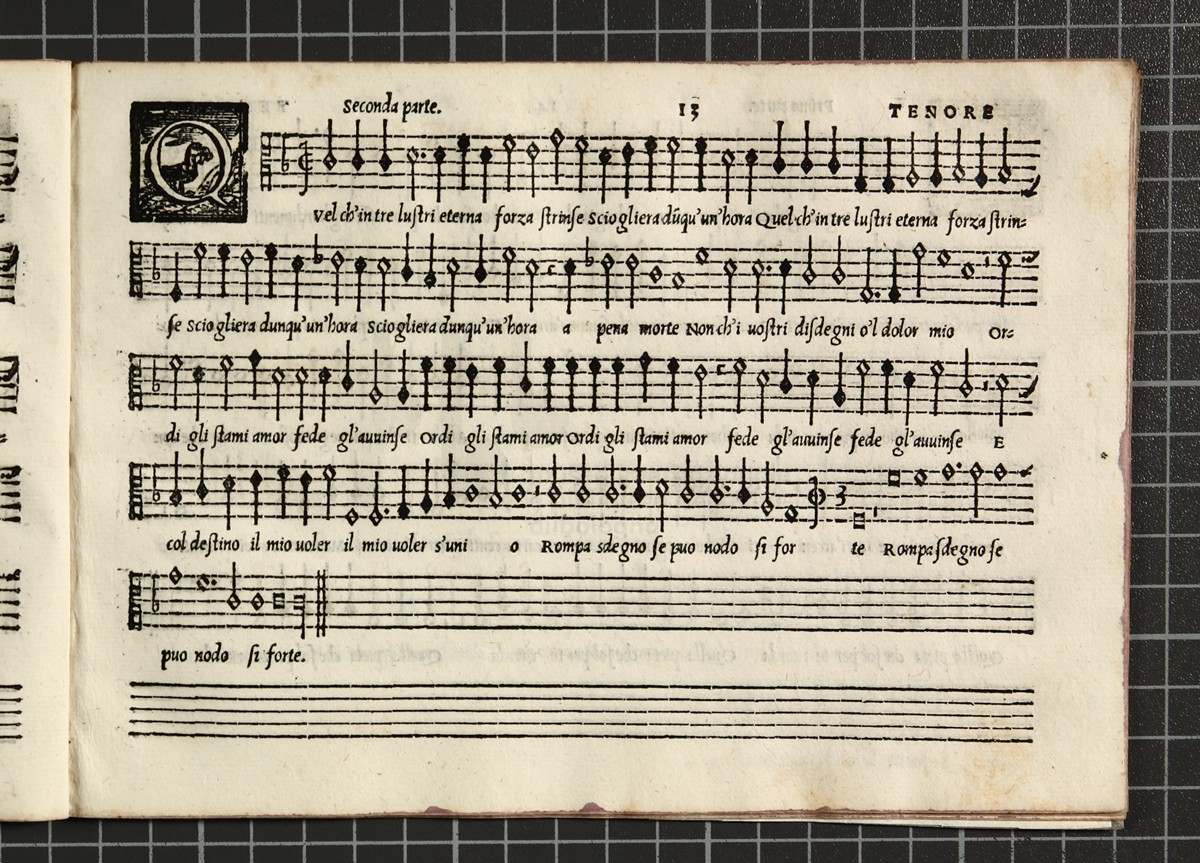 Seconda parte. 13 TENORE
Q
Vel ch'in tre lustri eterna forza strinse Sciogliera dũqu'un'hora Quel ch'in tre lustri eterna forza strin=
se Sciogliera dunqu'un'hora Sciogliera dunqu'un'hora a pena morte Non ch'i uostri disdegni o'l dolor mio Or=
di gli stami amor fede gl'auuinse Ordi gli stami amor Ordi gli stami amor fede gl'auuinse fede gl'auuinse E
col destino il mio uoler il mio uoler s'uni o Rompa sdegno se puo nodo si for te Rompa sdegno se
3
puo nodo si forte.